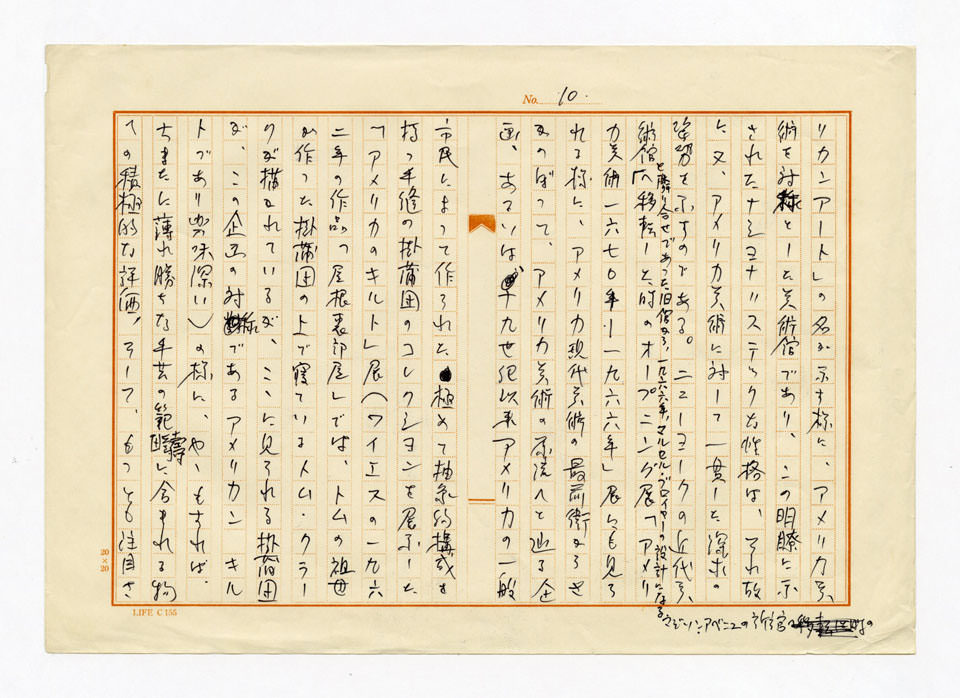 No. 10.
リカンアート」の名が示す様に、アメリカ美
術を対称とした美術館であり、この明瞭に示
されたナショナリスティックな性格は、それ故
に又、アメリカ美術に対して一貫した深求の
姿勢を示すのである。ニューヨークの近代美
術館と隣り合せであった旧館から、一九六六年、マルセル・ブロイヤーの設計になる
マジソン・アベニューの新館へ移転した時のオープニング展「アメリ
カ美術一六七〇年ー一九六六年」展にも見ら
れる様に、アメリカ現代美術の最前衛からさ
かのぼって、アメリカ美術の源流へと辿る企
画、あるいは十九世紀以来アメリカの一般
市民によって作られた極めて抽象的構成を
持つ手縫の掛蒲団のコレクションを展示した
「アメリカのキルト」展(ワイエスの一九六
二年の作品「屋根裏部屋」では、トムの祖母
が作った掛蒲団の上で寝ているトム・クラー
クが描かれているが、ここに見られる掛蒲団
が、この企画の対称であるアメリカン キル
トであり興味深い)の様に、やゝもすれば、
ちまたに薄れ勝ちな手芸の範疇に含まれる物
への積極的な評価、そして、もっとも注目さ
20×20
LIFE C 155